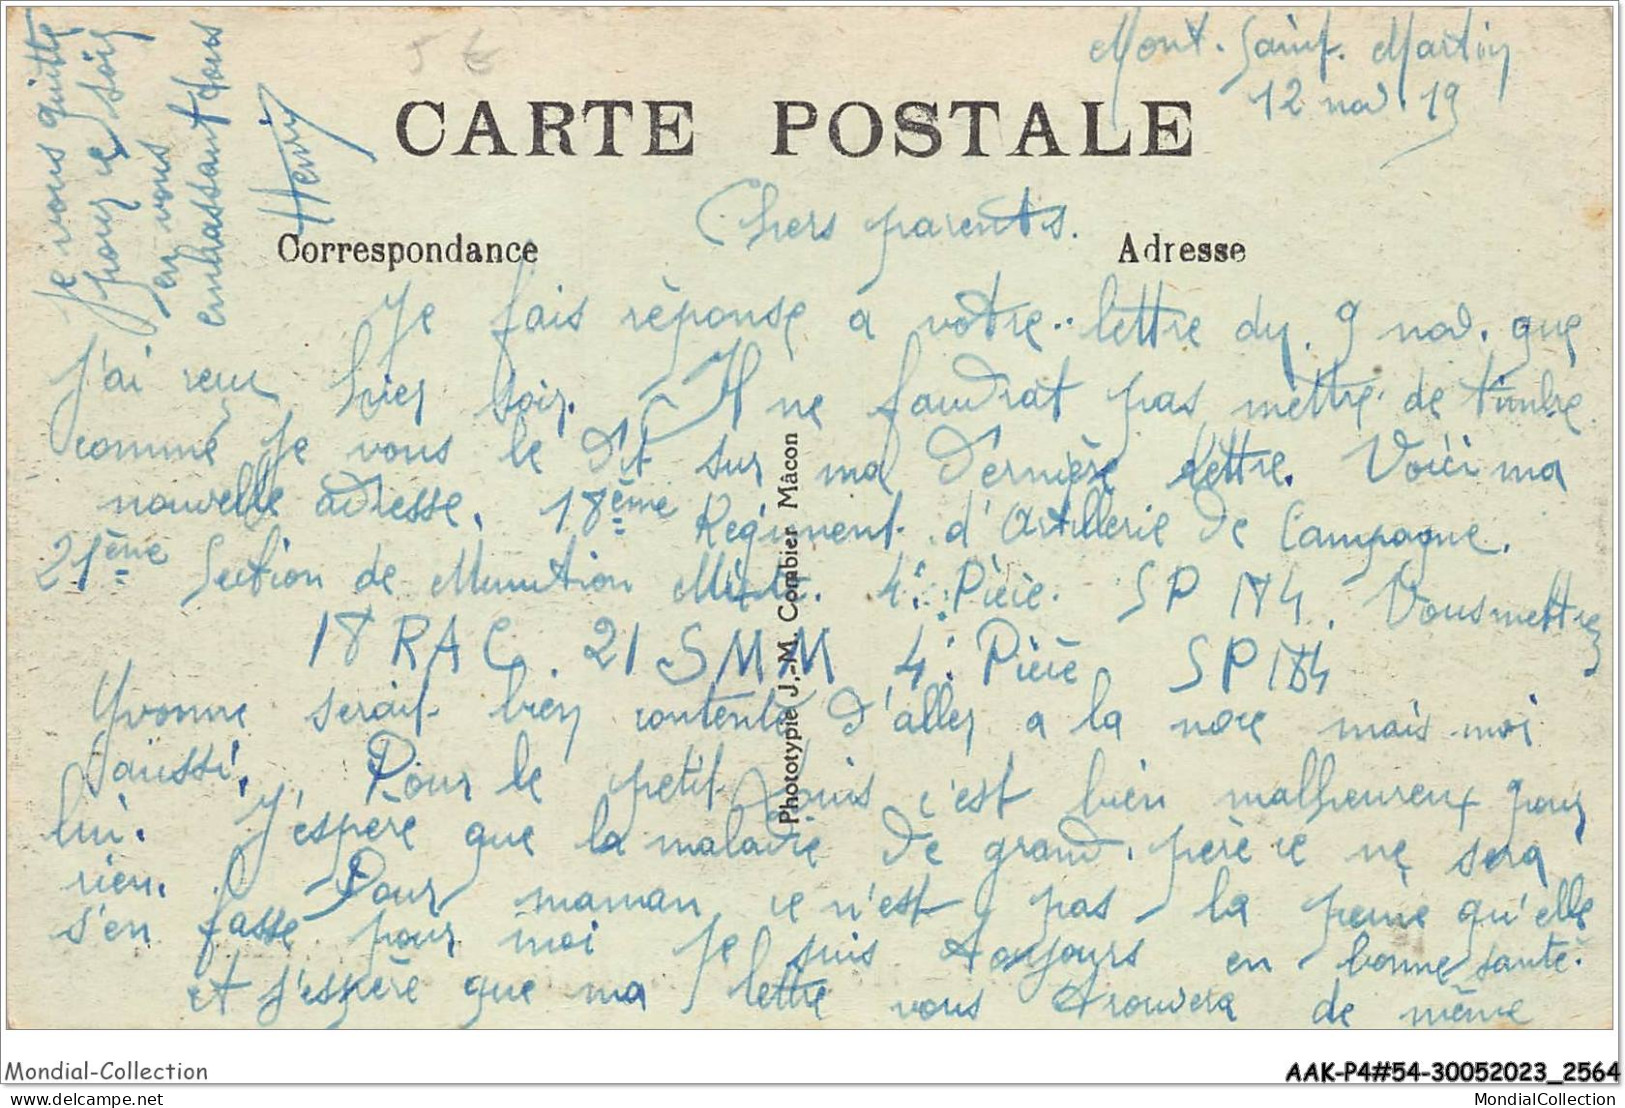 Mont-Saint-Martin
12 nov. 19
5 €
CARTE POSTALE
Chers parents.
Correspondance
Adresse
Je fais réponse a votre lettre du 9 nov. que
j'ai reçu hier soir. Il ne faudrat pas mettre de timbre
comme je vous le dit sur ma dernière lettre. Voici ma
nouvelle adresse. 18ème Regiment d'Artillerie de Campagne.
21ème Section de Munition Mixte. 4e Pièce. SP 184. Vous mettrez
18 RAC. 21 SMM 4e Pièce SP 184
Yvonne serait bien contente d'aller a la noce mais moi
aussi. Pour le petit Louis c'est bien malheureux pour
lui. J'espère que la maladie de grand-père ce ne sera
rien. Pour maman ce n'est pas la peine qu'elle
s'en fasse pour moi je suis toujours en bonne santé.
et j'espère que ma lettre vous trouvera de même
Je vous quitte
pour ce soir
en vous
embrassant tous
Henri
Phototypie J.-M. Combier Mâcon
Mondial-Collection
AAK-P4#54-30052023_2564
delcampe.net
MondialCollection